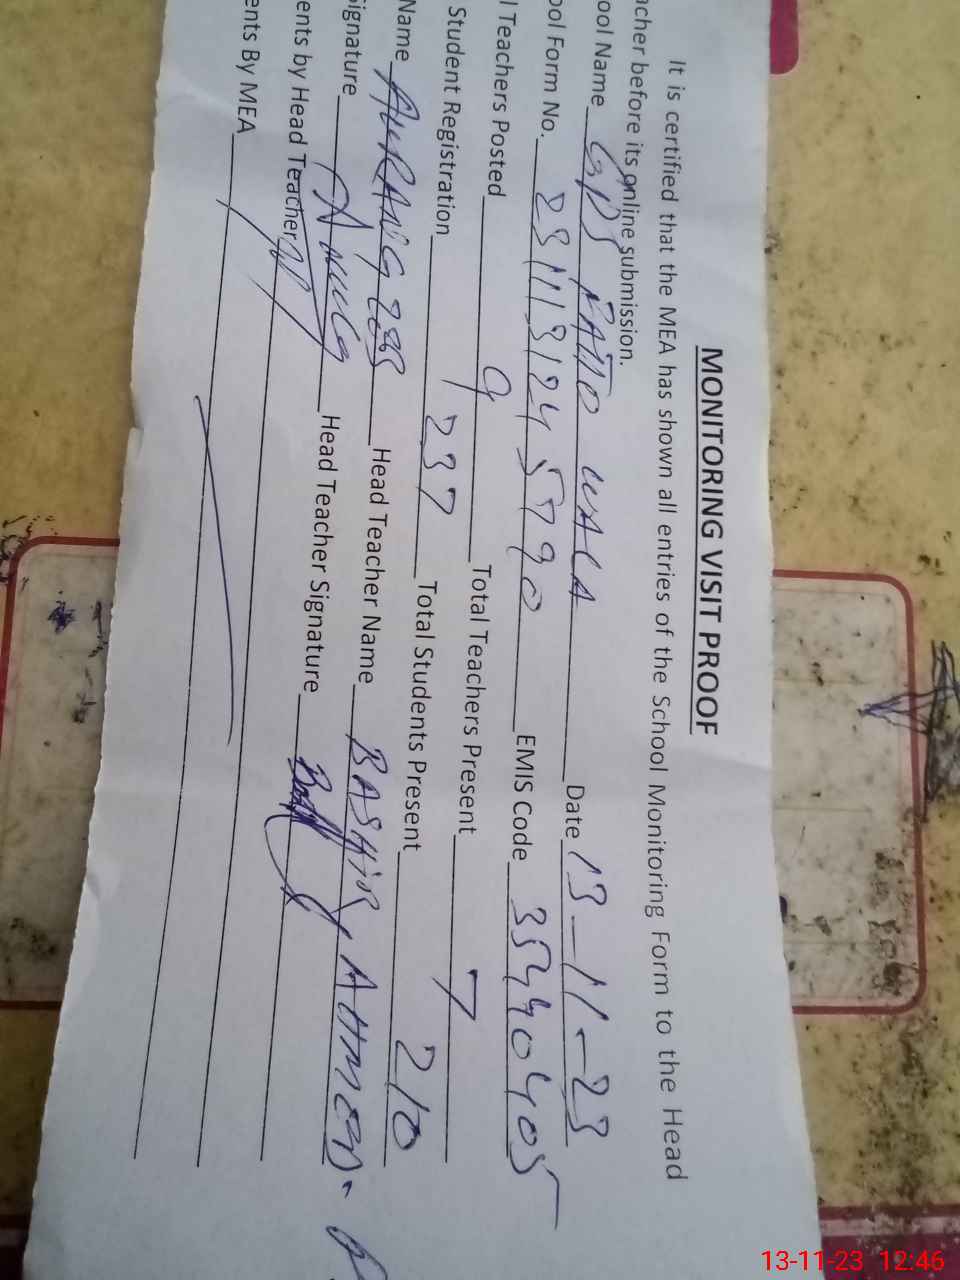 MONITORING VISIT PROOF
It is certified that the MEA has shown all entries of the School Monitoring Form to the Head
acher before its online submission.
ool Name GPS PATTO WALA Date 13-11-23
ool Form No. 231113124 5790 EMIS Code 35440405
l Teachers Posted 9 Total Teachers Present 7
Student Registration 237 Total Students Present 210
Name AURANG ZEB Head Teacher Name BASHIR AHMED
Signature Head Teacher Signature
ents by Head Teacher
ents By MEA
13-11-23 12:46